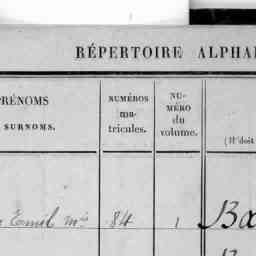 RÉPERTOIRE ALPHA
PRÉNOMS
SURNOMS.
NUMÉROS
ma-
tricules.
NU-
MÉRO
du
volume.
(Il doit
Emil 84 1